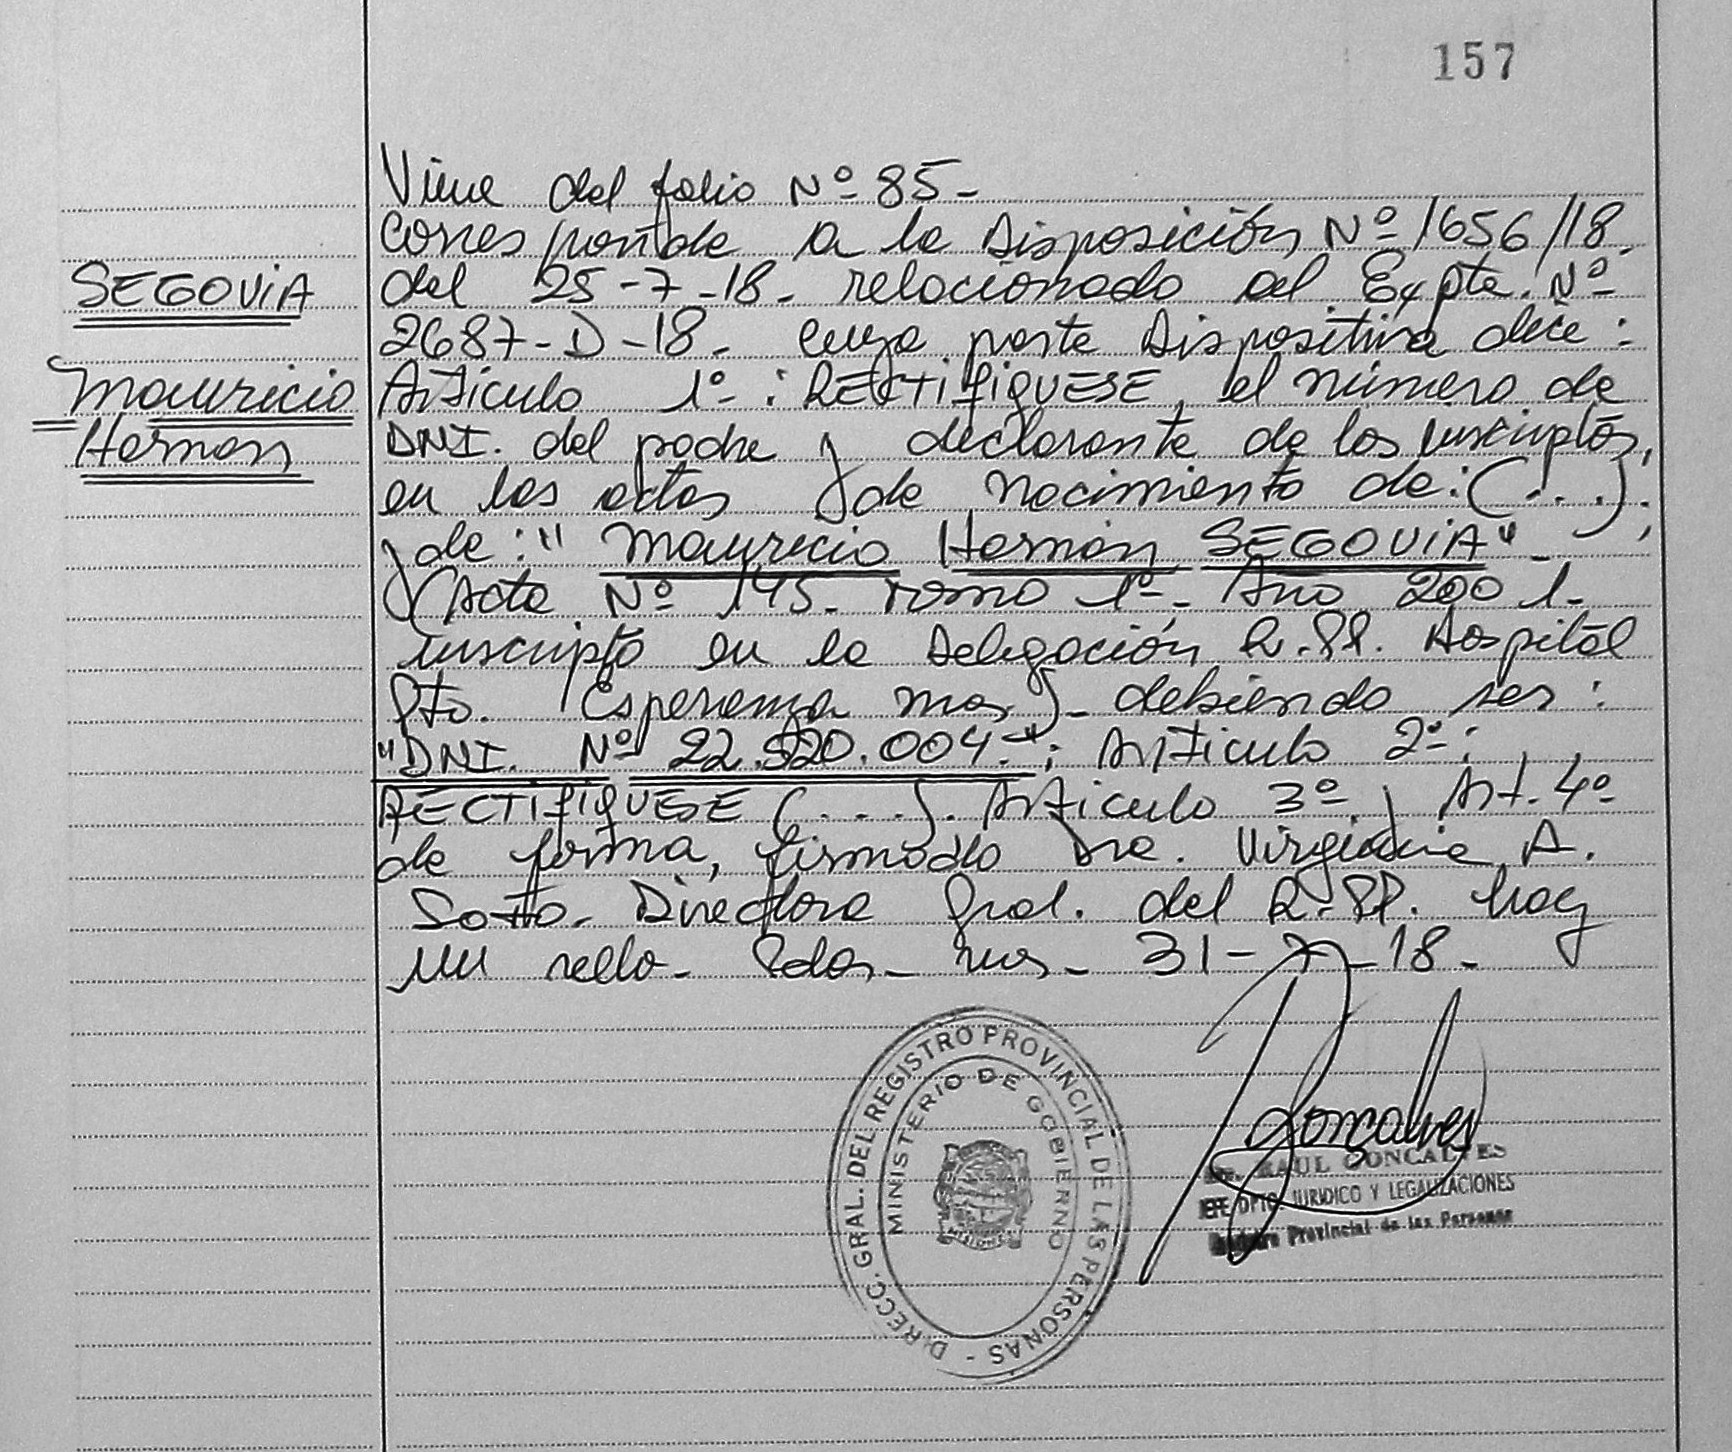 157
Viene del folio Nº 85-
Corresponde a la Disposición Nº 1656/18.
SEGOVIA
del 25-7-18- relacionado al Expte. Nº
2687-D-18- cuya parte Dispositiva dice:
Mauricio
Articulo 1º: RECTIFIQUESE, el número de
Hernan
DNI. del padre y declarante de los inscriptos,
en las actas de nacimiento de: (...).
y de: "Mauricio Hernan SEGOVIA"-
(Acta Nº 145- Tomo 1º- Año 2001-
inscripto en la Delegación R.PP. Hospital
Pto. Esperanza mnes)- debiendo ser:
"DNI. Nº 22.520.004-"; Articulo 2º:
RECTIFIQUESE (...). Articulo 3º y Art. 4º
de forma, firmado Dra. Virginia A.
Sotto- Directora Gral. del R.PP. hay
un sello- Pdas- mns- 31-7-18-
DIRECC. GRAL. DEL REGISTRO PROVINCIAL DE LAS PERSONAS -
MINISTERIO DE GOBIERNO
MISIONES
Goncalves
RAUL GONCALVES
JEFE DPTO. JURIDICO Y LEGALIZACIONES
Registro Provincial de las Personas